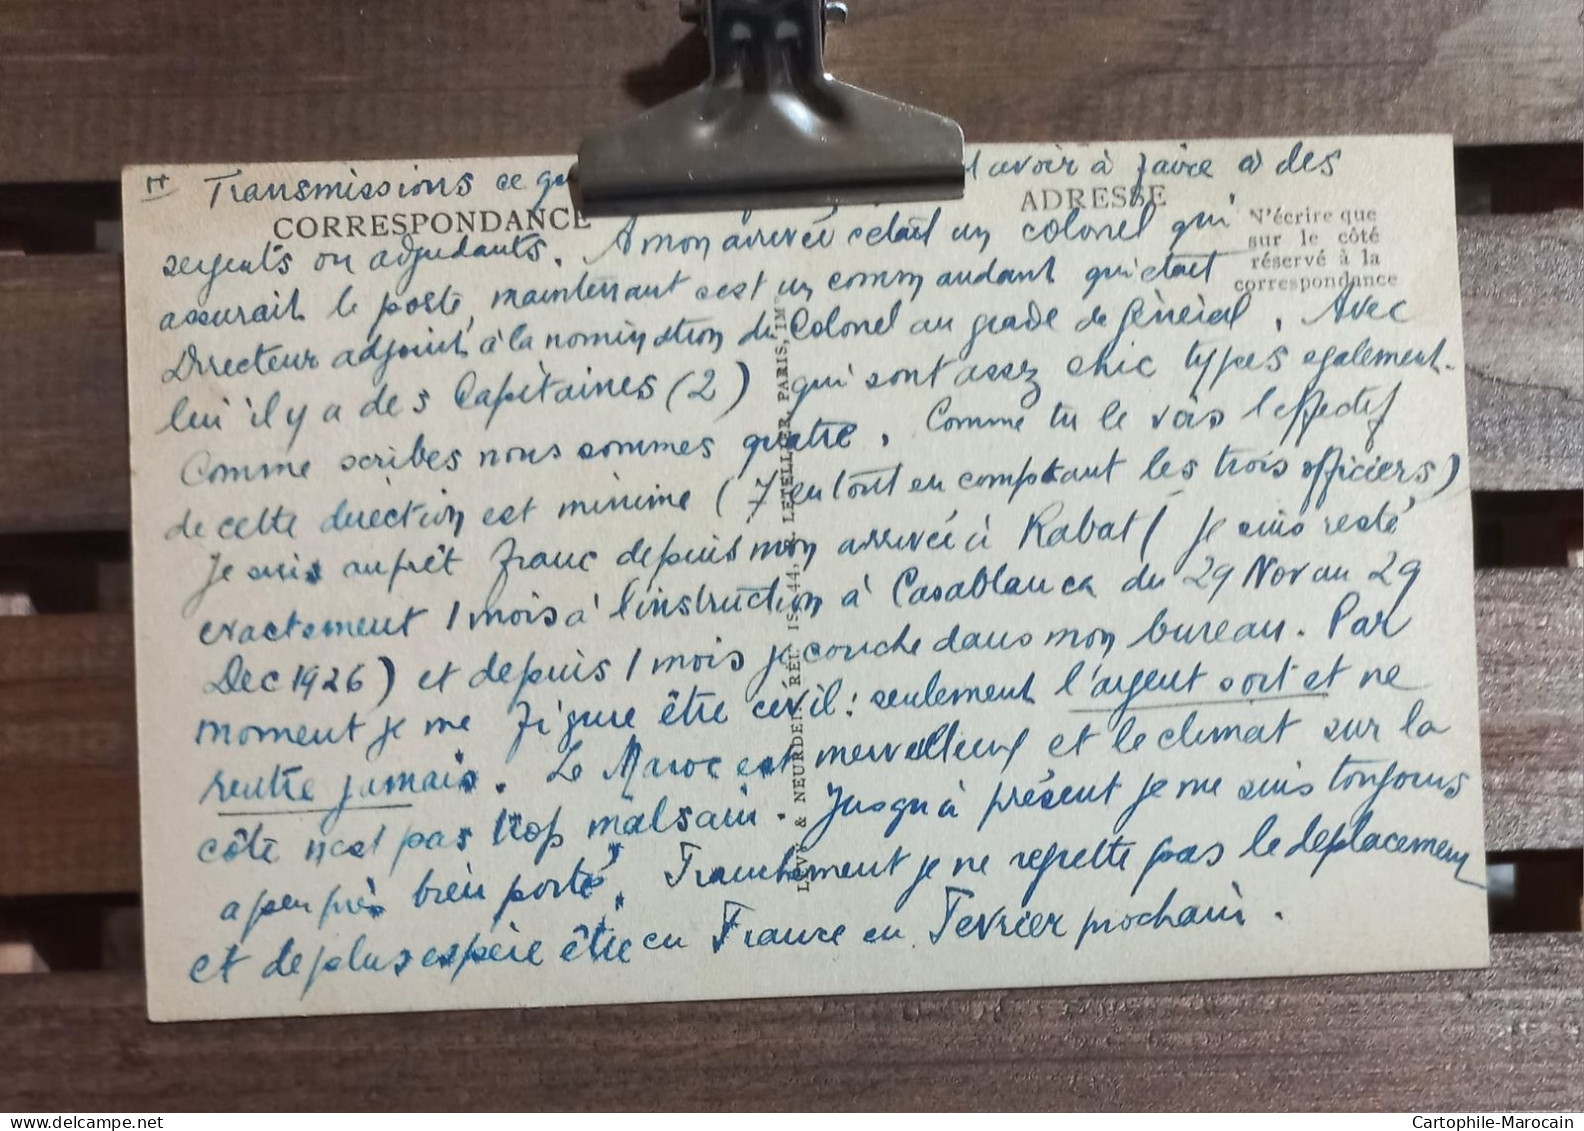 II Transmissions ce avoir à faire à des
CORRESPONDANCE
ADRESSE
N'écrire que
sur le côté
réservé à la
correspondance
sergents ou adjudants. A mon arrivée c'etait un colonel qui
assurait le poste, maintenant c'est un commandant qui etait
Directeur adjoint à la nomination du Colonel au grade de Général. Avec
lui il y a des Capitaines (2) qui sont assez chic types egalement.
Comme scribes nous sommes quatre. Comme tu le vois l'effectif
de cette direction est minime (7 en tout en comptant les trois officiers)
Je suis au prêt franc depuis mon arrivée à Rabat (je suis resté
exactement 1 mois à l'instruction à Casablanca du 29 Nov au 29
Dec 1926) et depuis 1 mois je couche dans mon bureau. Par
moment je me figure être civil: seulement l'argent sort et ne
rentre jamais. Le Maroc est merveilleux et le climat sur la
côte n'est pas trop malsain. Jusqu'à présent je me suis toujours
a peu près bien porté. Franchement je ne regrette pas le deplacement
et de plus espère être en France en Fevrier prochain.
LEVY & NEURDEIN RÉUNIS, 44, R. LETELLIER, PARIS, IMP
Cartophile-Marocain